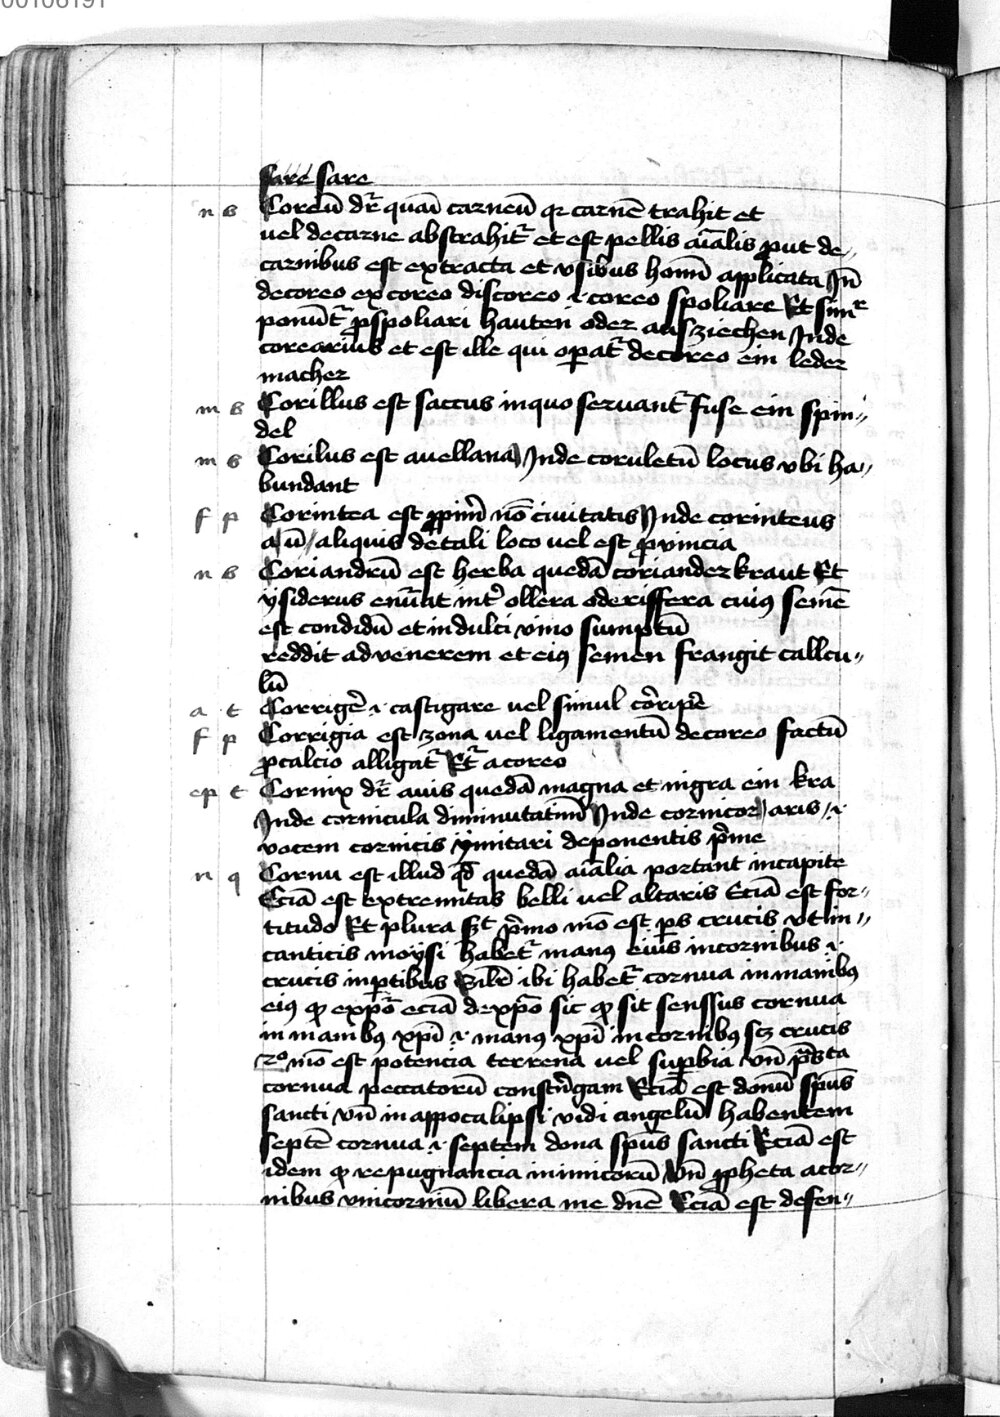 00106191
sare sare
n s Coreū dr̄ quasi carneū qr carnē trahit et
vel decarne abstrahit᷑ et est pellis aīalis ꝓut de〃
carnibus est extracta et vsibus hoīm applicata Jn̄
decoreo excoreo discoreo .i. coreo spoliare Et simr
ponūt᷑ ꝓspoliari hauten oder ausziechen Jnde
corearius et est ille qui oꝑat᷑ decoreo ein leder
macher
m s Corillus est saccus inquo servant᷑ fuse ein spin〃
del
m s Corilus est auellana Jnde coruletū locus vbi ha〃
bundant
f p Corintea est ꝓpriū nō civitatis Jnde corinteus
a ū aliquis detali loco vel est ꝓvincia
n s Coriandrū est herba quedā corianderkraut Et
ysiderus enūat int᷑ ollera oderiffera cuiꝰ semē
est condidū et in dulci vino sumptū
reddit ad venerem et eiꝰ semen frangit callcu〃
lū
a t Corrigēr .i. castigare vel simul cōripēr
f p Corrigia est zona vel ligamentū decoreo factū
ꝓcalcio alligat᷑ Et᷑ acoreo
ep t Cornix dr̄ avis quedā magna et nigra ein kra
Jnde cornicula diminutatiūm Jnde cornicor aris .i.
vocem cornicis ymitari deponentis p̄me
n q Cornu est illud qd̄ quedā aīalia portant incapite
Eciā est extremitas belli vel altaris Eciā est for〃
titudo Et plura st p̄mo mō est ꝑs crucis vt in〃
canticis moysi habet᷑ manꝰ eius incornibus .i.
crucis inꝑtibus Silr̄ ibi habet᷑ cornua in manibꝰ
eiꝰ ꝙ exp̄o eciā dexp̄o sic ꝙ sit senssus cornua
in manibꝰ xp̄i .i. manꝰ xp̄i in cornibꝰ scꝫ crucis
2o mō est potencia terrena vel suꝑbia vn̄ p̄s̄ta
cornua peccatorū constrīgam Eciā est donū spūs
sancti vn̄ in appocalipsi vidi angelū habentem
septē cornua .i. septem dona spūs sancti Eciā est
idem ꝙ repugnancia inimicorū vn̄ ꝓpheta acor〃
nibus vnicorniū libera me dn̄e Eciā est defen〃